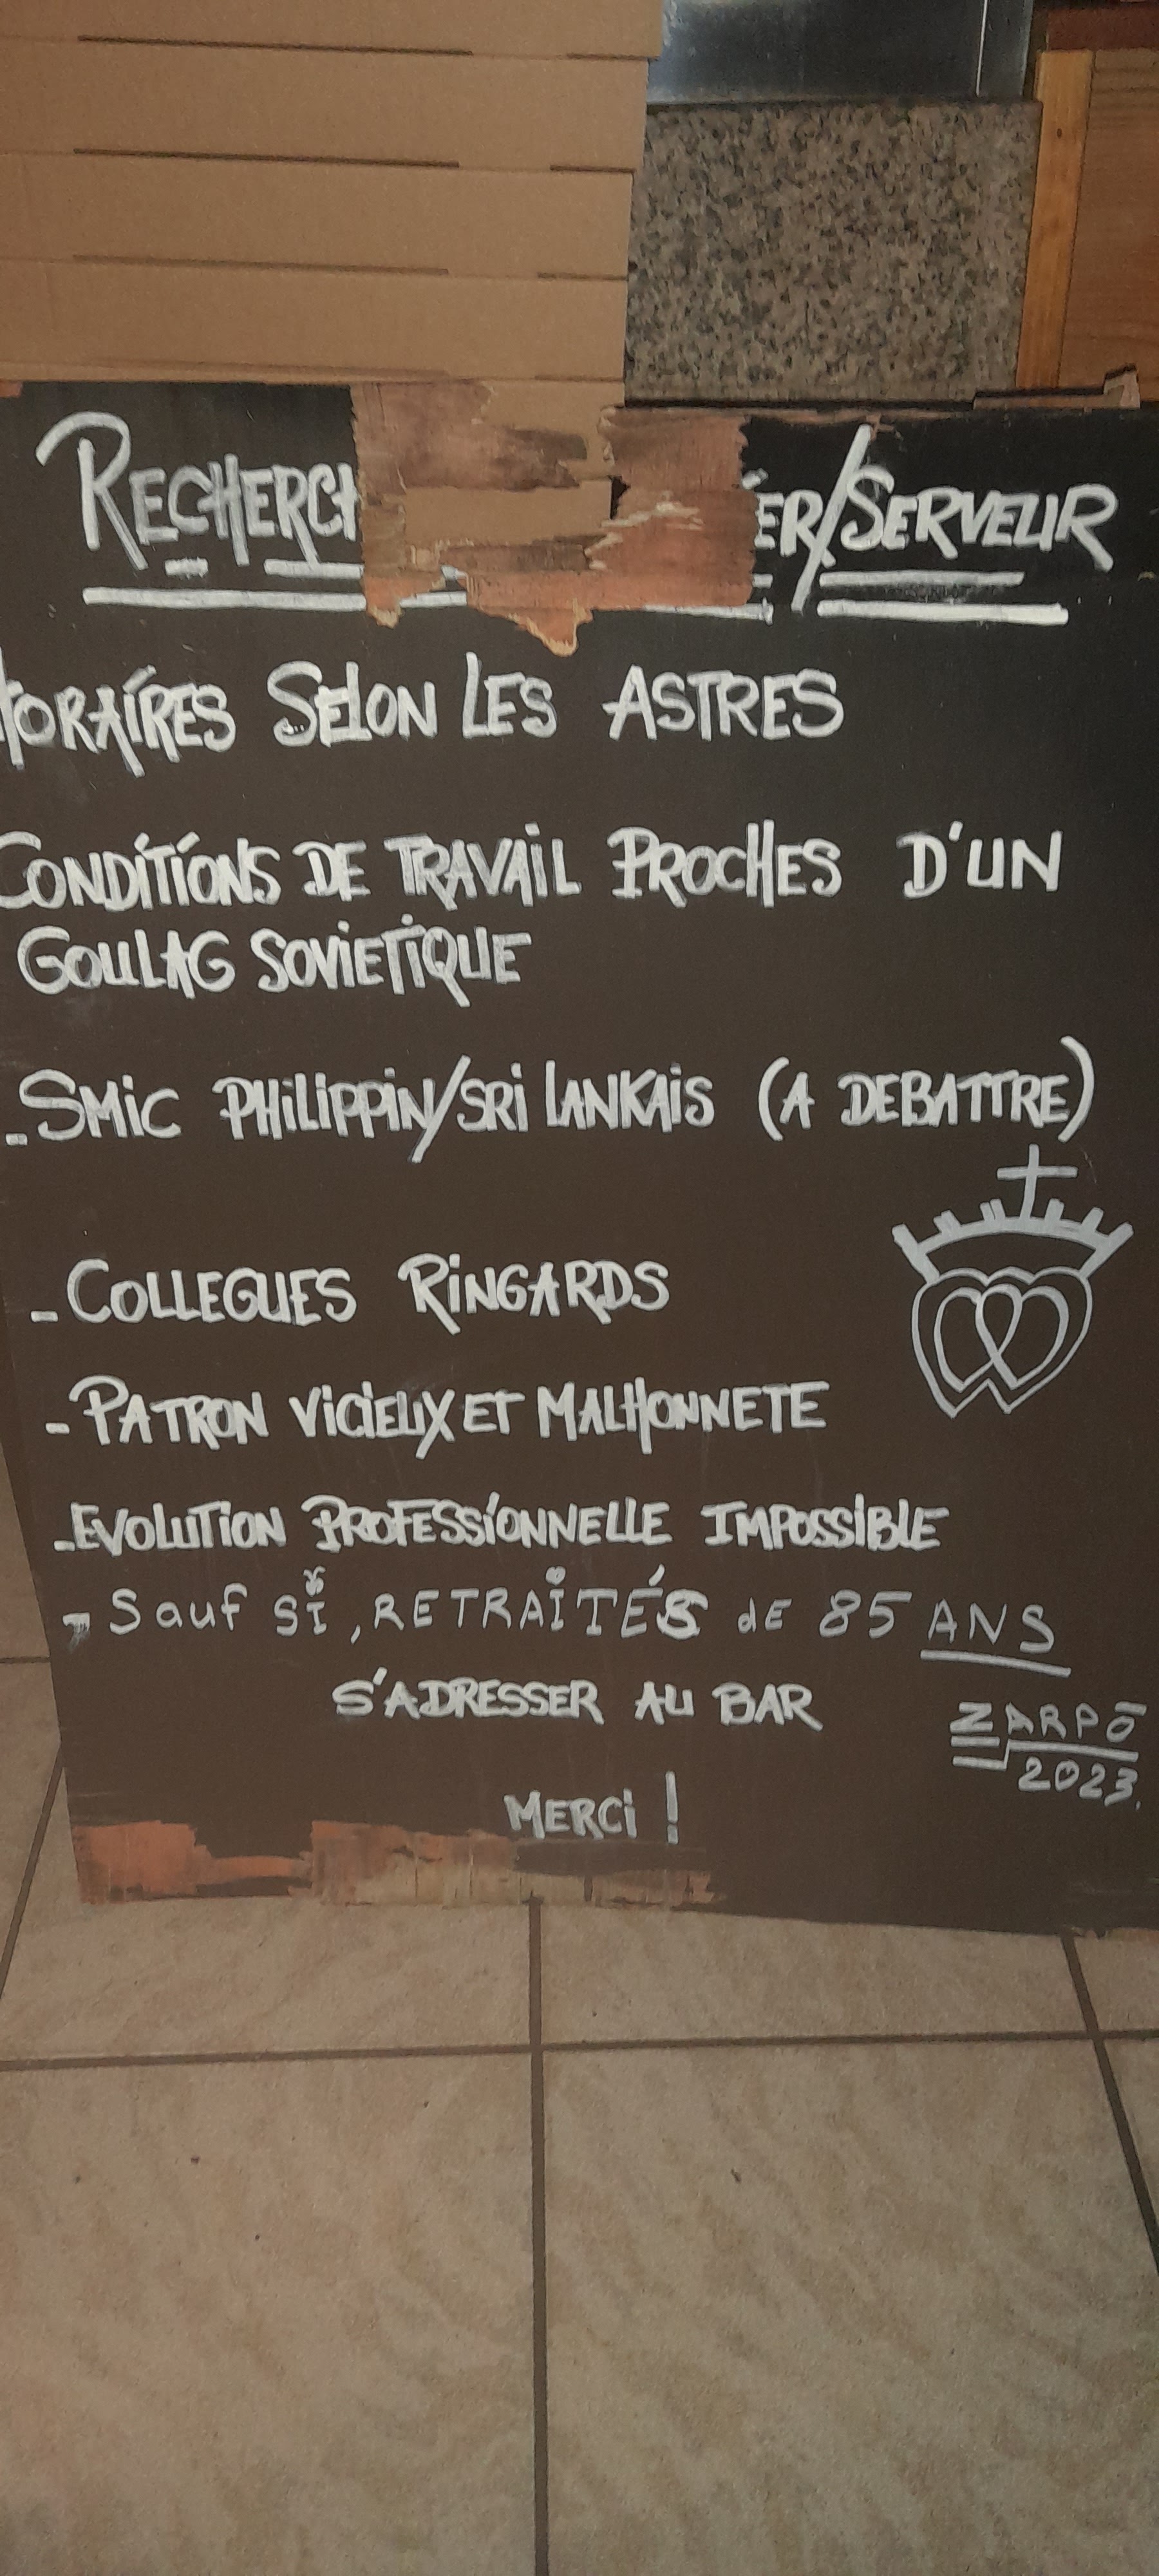 RECHERCH ER/SERVEUR
HORAIRES SELON LES ASTRES
CONDITIONS DE TRAVAIL PROCHES D'UN
GOULAG SOVIETIQUE
- SMIC PHILIPPIN/SRI LANKAIS (A DEBATTRE)
- COLLEGUES RINGARDS
- PATRON VICIEUX ET MALHONNETE
- EVOLUTION PROFESSIONNELLE IMPOSSIBLE
- Sauf SI, RETRAITÉS de 85 ANS
S'ADRESSER AU BAR
ZARPO
2023.
MERCI !